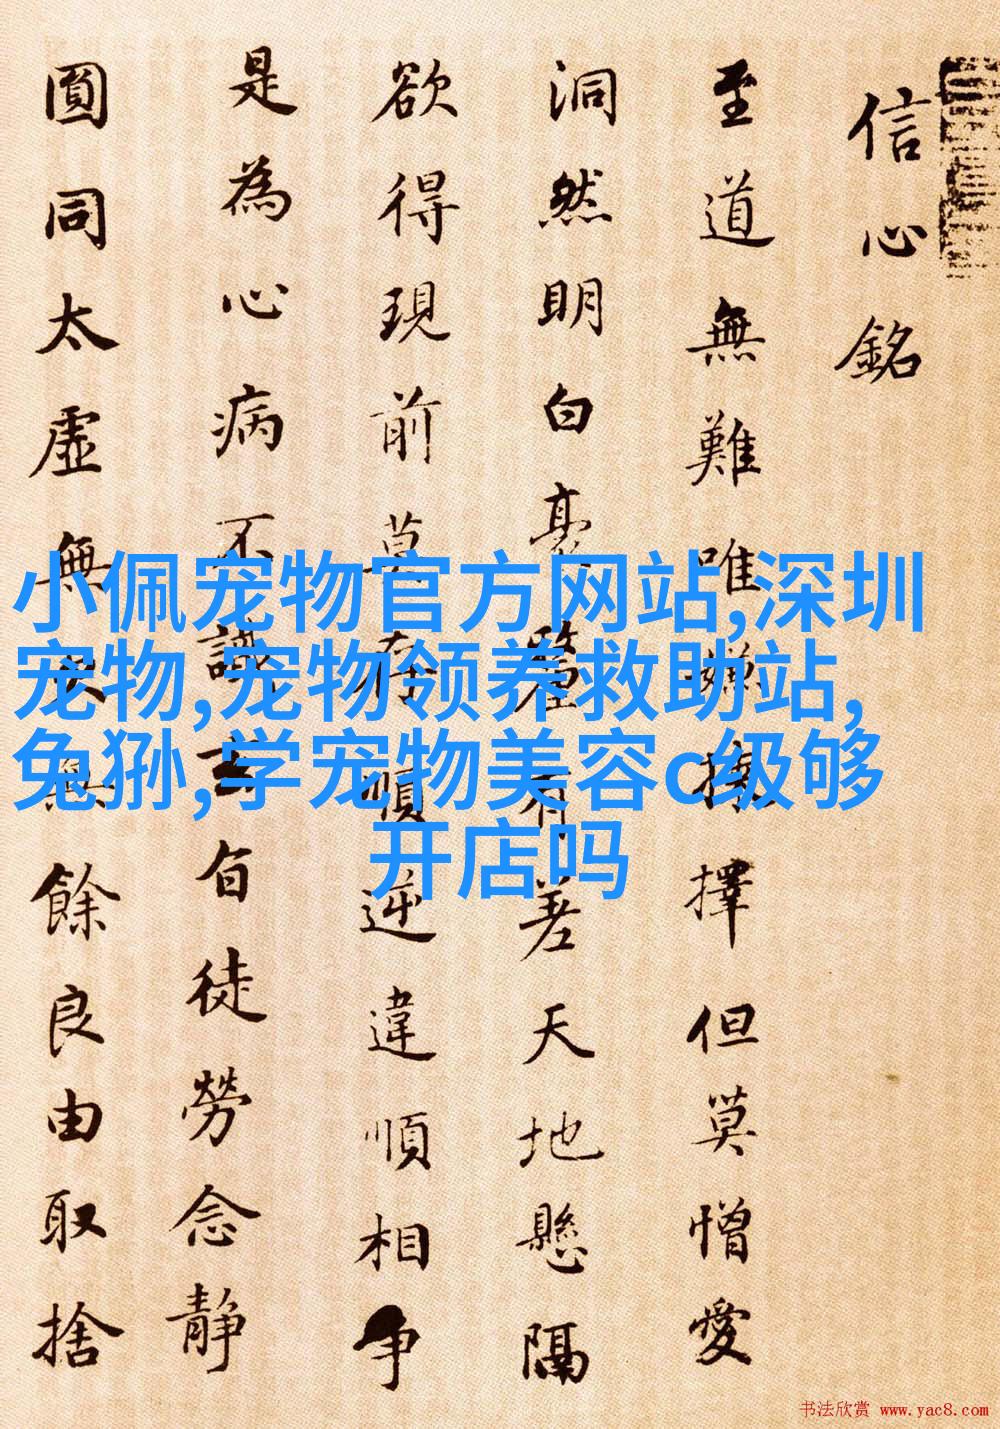 信心銘
至道無難唯嫌揀擇但莫憎愛
洞然明白毫釐有差天地懸隔
欲得現前莫存順逆違順相争
是為心病不識玄旨徒勞念静
圓同太虛無欠無餘良由取捨
小佩宠物官方网站,深圳
宠物,宠物领养救助站,
兔狲,学宠物美容c级够
开店吗
书法欣赏 www.yac8.com